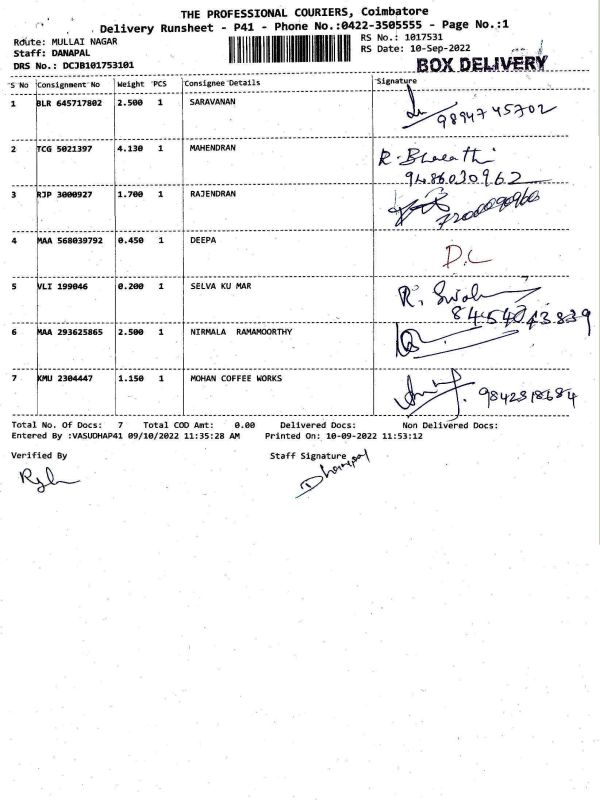 THE PROFESSIONAL COURIERS, Coimbatore
Delivery Runsheet - P41 - Phone No.:0422-3505555 - Page No.:1
Route: MULLAI NAGAR
RS No.: 1017531
Staff: DANAPAL
RS Date: 10-Sep-2022
DRS No.: DCJB101753101
BOX DELIVERY
S No Consignment No Weight PCS Consignee Details Signature
1 BLR 645717802 2.500 1 SARAVANAN
9894745702
2 TCG 5021397 4.130 1 MAHENDRAN R. Bharathi
9486030962
3 RJP 3000927 1.700 1 RAJENDRAN
4 MAA 568039792 0.450 1 DEEPA D.C
5 VLI 199046 0.200 1 SELVA KU MAR R.
8454043839
6 MAA 293625865 2.500 1 NIRMALA RAMAMOORTHY
7 KMU 2304447 1.150 1 MOHAN COFFEE WORKS 9842318684
Total No. Of Docs: 7 Total COD Amt: 0.00 Delivered Docs: Non Delivered Docs:
Entered By :VASUDHAP41 09/10/2022 11:35:28 AM Printed On: 10-09-2022 11:53:12
Verified By Staff Signature
Dhanapal